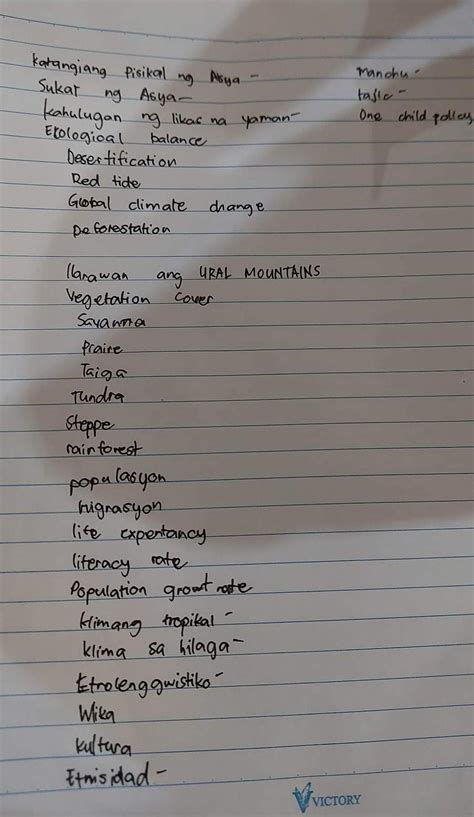 Katangiang Pisikal ng Asya -
Sukat ng Asya -
Kahulugan ng likas na yaman -
Ekological balance
Desertification
Red tide
Global climate change
Deforestation
Ilarawan ang URAL MOUNTAINS
Vegetation cover
Savanna
Praire
Taiga
Tundra
Steppe
rainforest
populasyon
migrasyon
life expentancy
literacy rate
Population growt rate
klimang tropikal -
klima sa hilaga -
Etnolenggwistiko -
Wika
kultura
Etnisidad -
Manchu -
One child policy
VICTORY